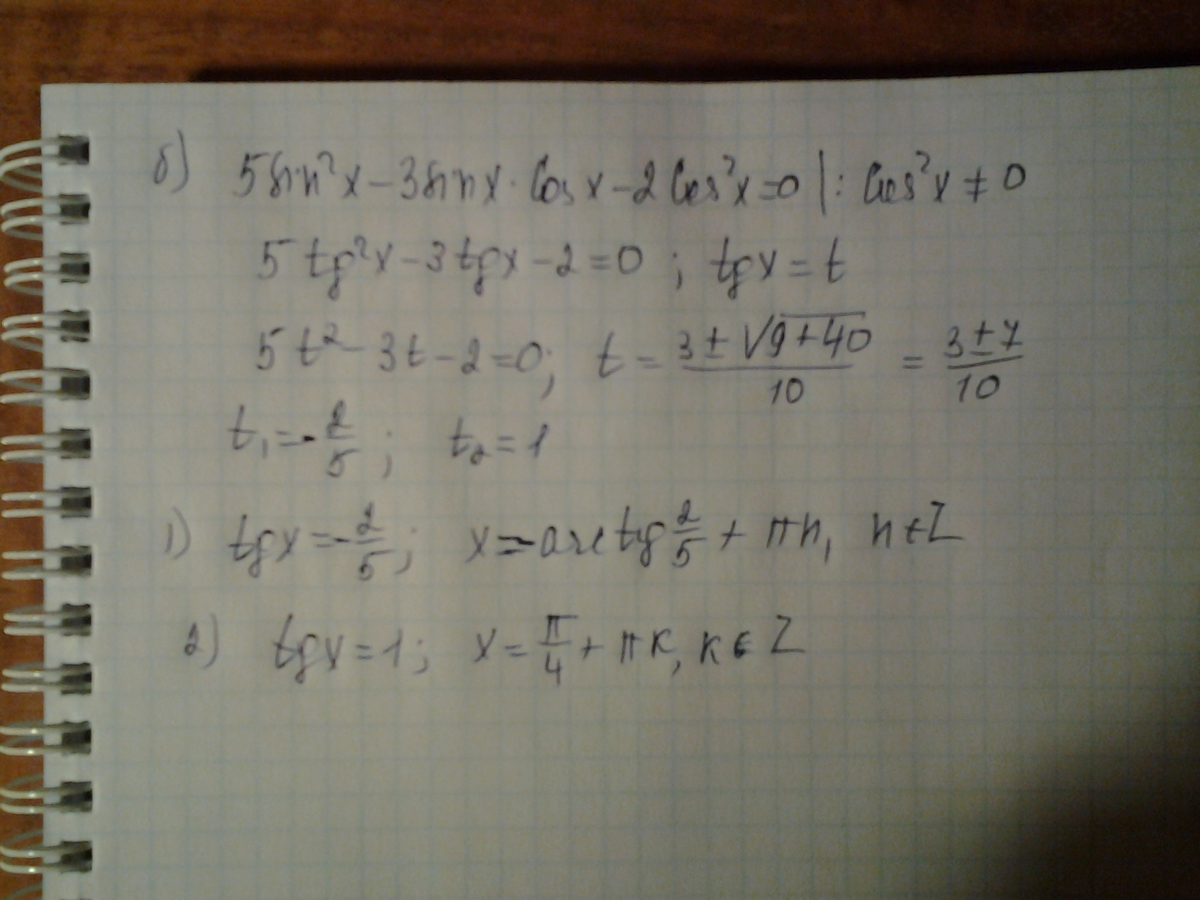 б) 5sin²x – 3sinx · cosx – 2cos²x = 0 | : cos²x ≠ 0
5tg²x – 3tgx – 2 = 0 ; tgx = t
5t² – 3t – 2 = 0; t = (3 ± √(9+40))/10 = (3 ± 7)/10
t₁ = -2/5 ; t₂ = 1
1) tgx = -2/5 ; x = -arctg 2/5 + πn, n ∈ Z
2) tgx = 1 ; x = π/4 + πк, к ∈ Z